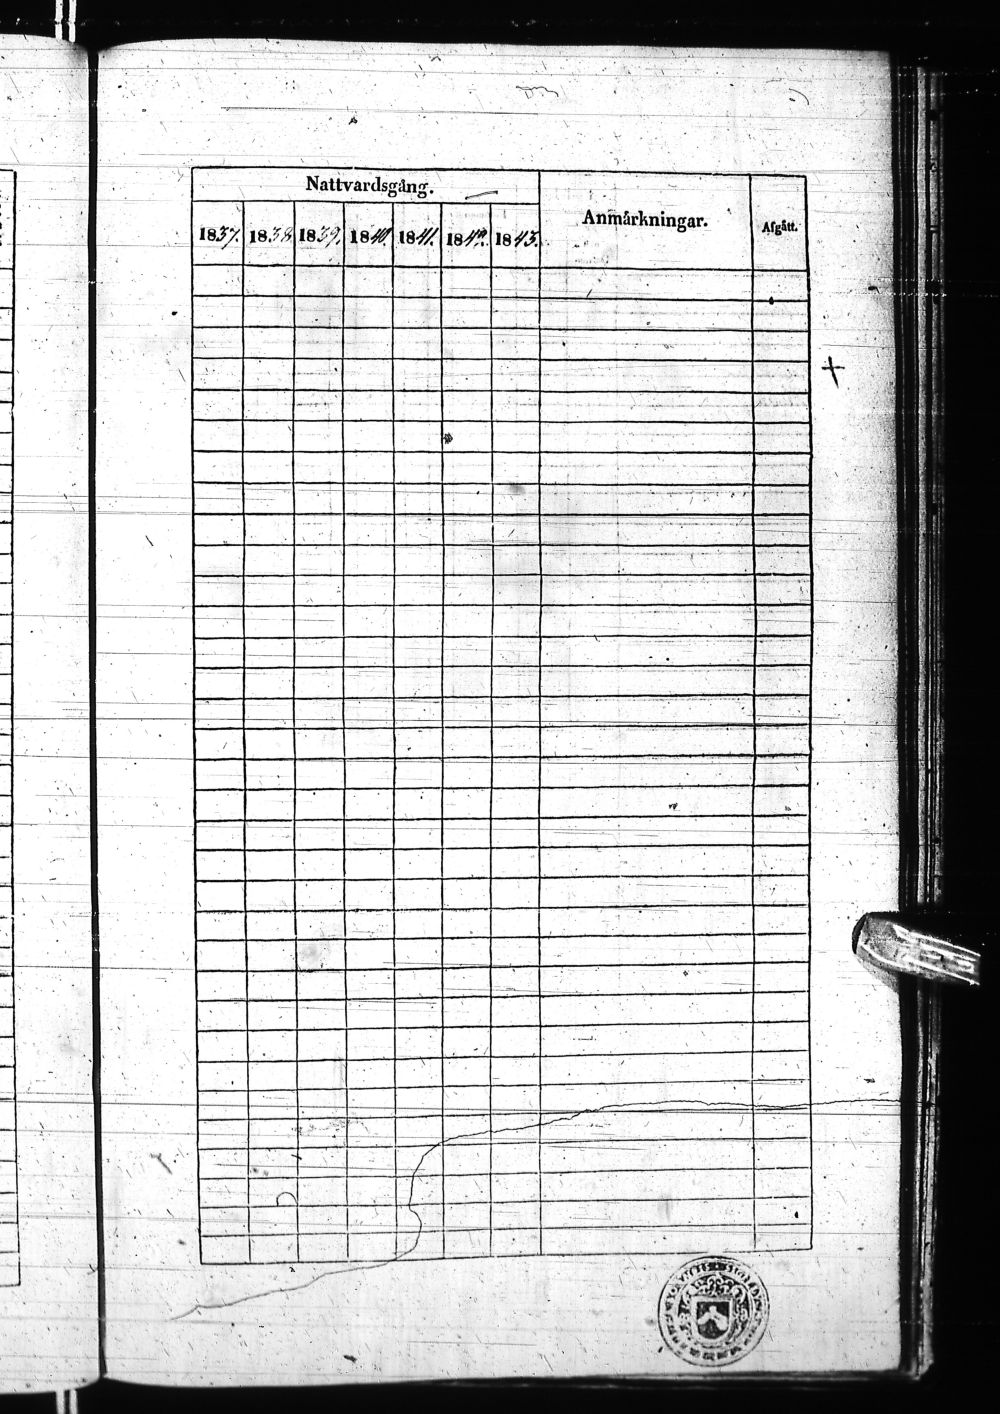 Nattvardsgång.
Anmärkningar.
Afgått.
1837. 1838 1839. 1840. 1841. 1842. 1843.